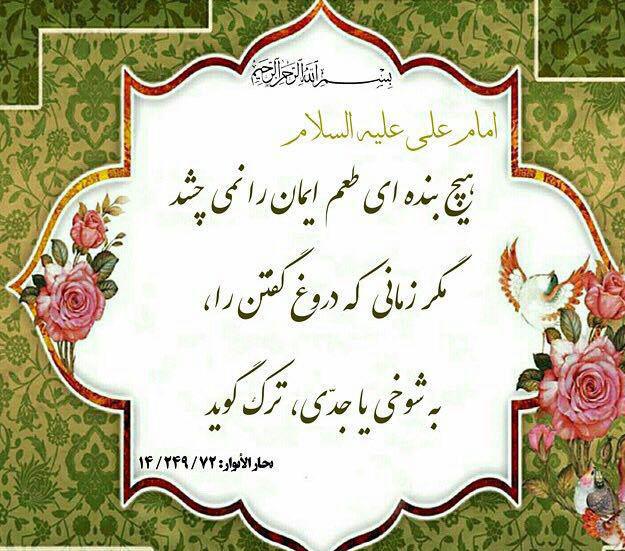 بسم الله الرحمن الرحیم
امام علی علیه السلام
هیچ بنده ای طعم ایمان را نمی چشد
مگر زمانی که دروغ گفتن را،
به شوخی یا جدّی، ترک گوید
بحار الأنوار: ۷۲ / ۲۴۹ / ۱۴